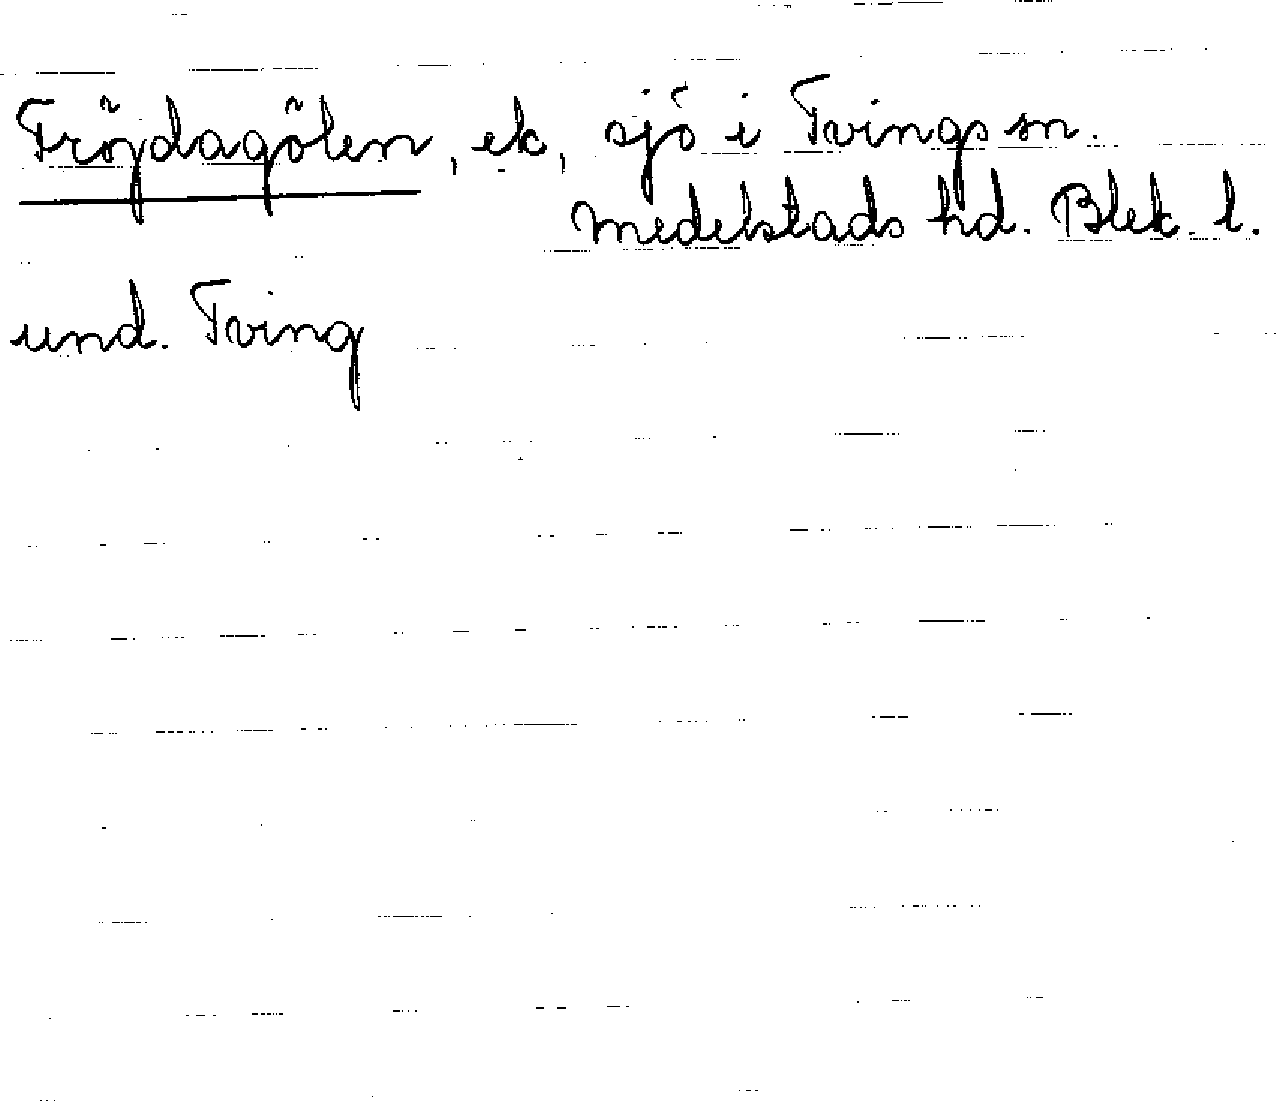 Fröjdagölen, ek, sjö i Tvings sn.
Medelstads hd. Blek. l.
und. Tving